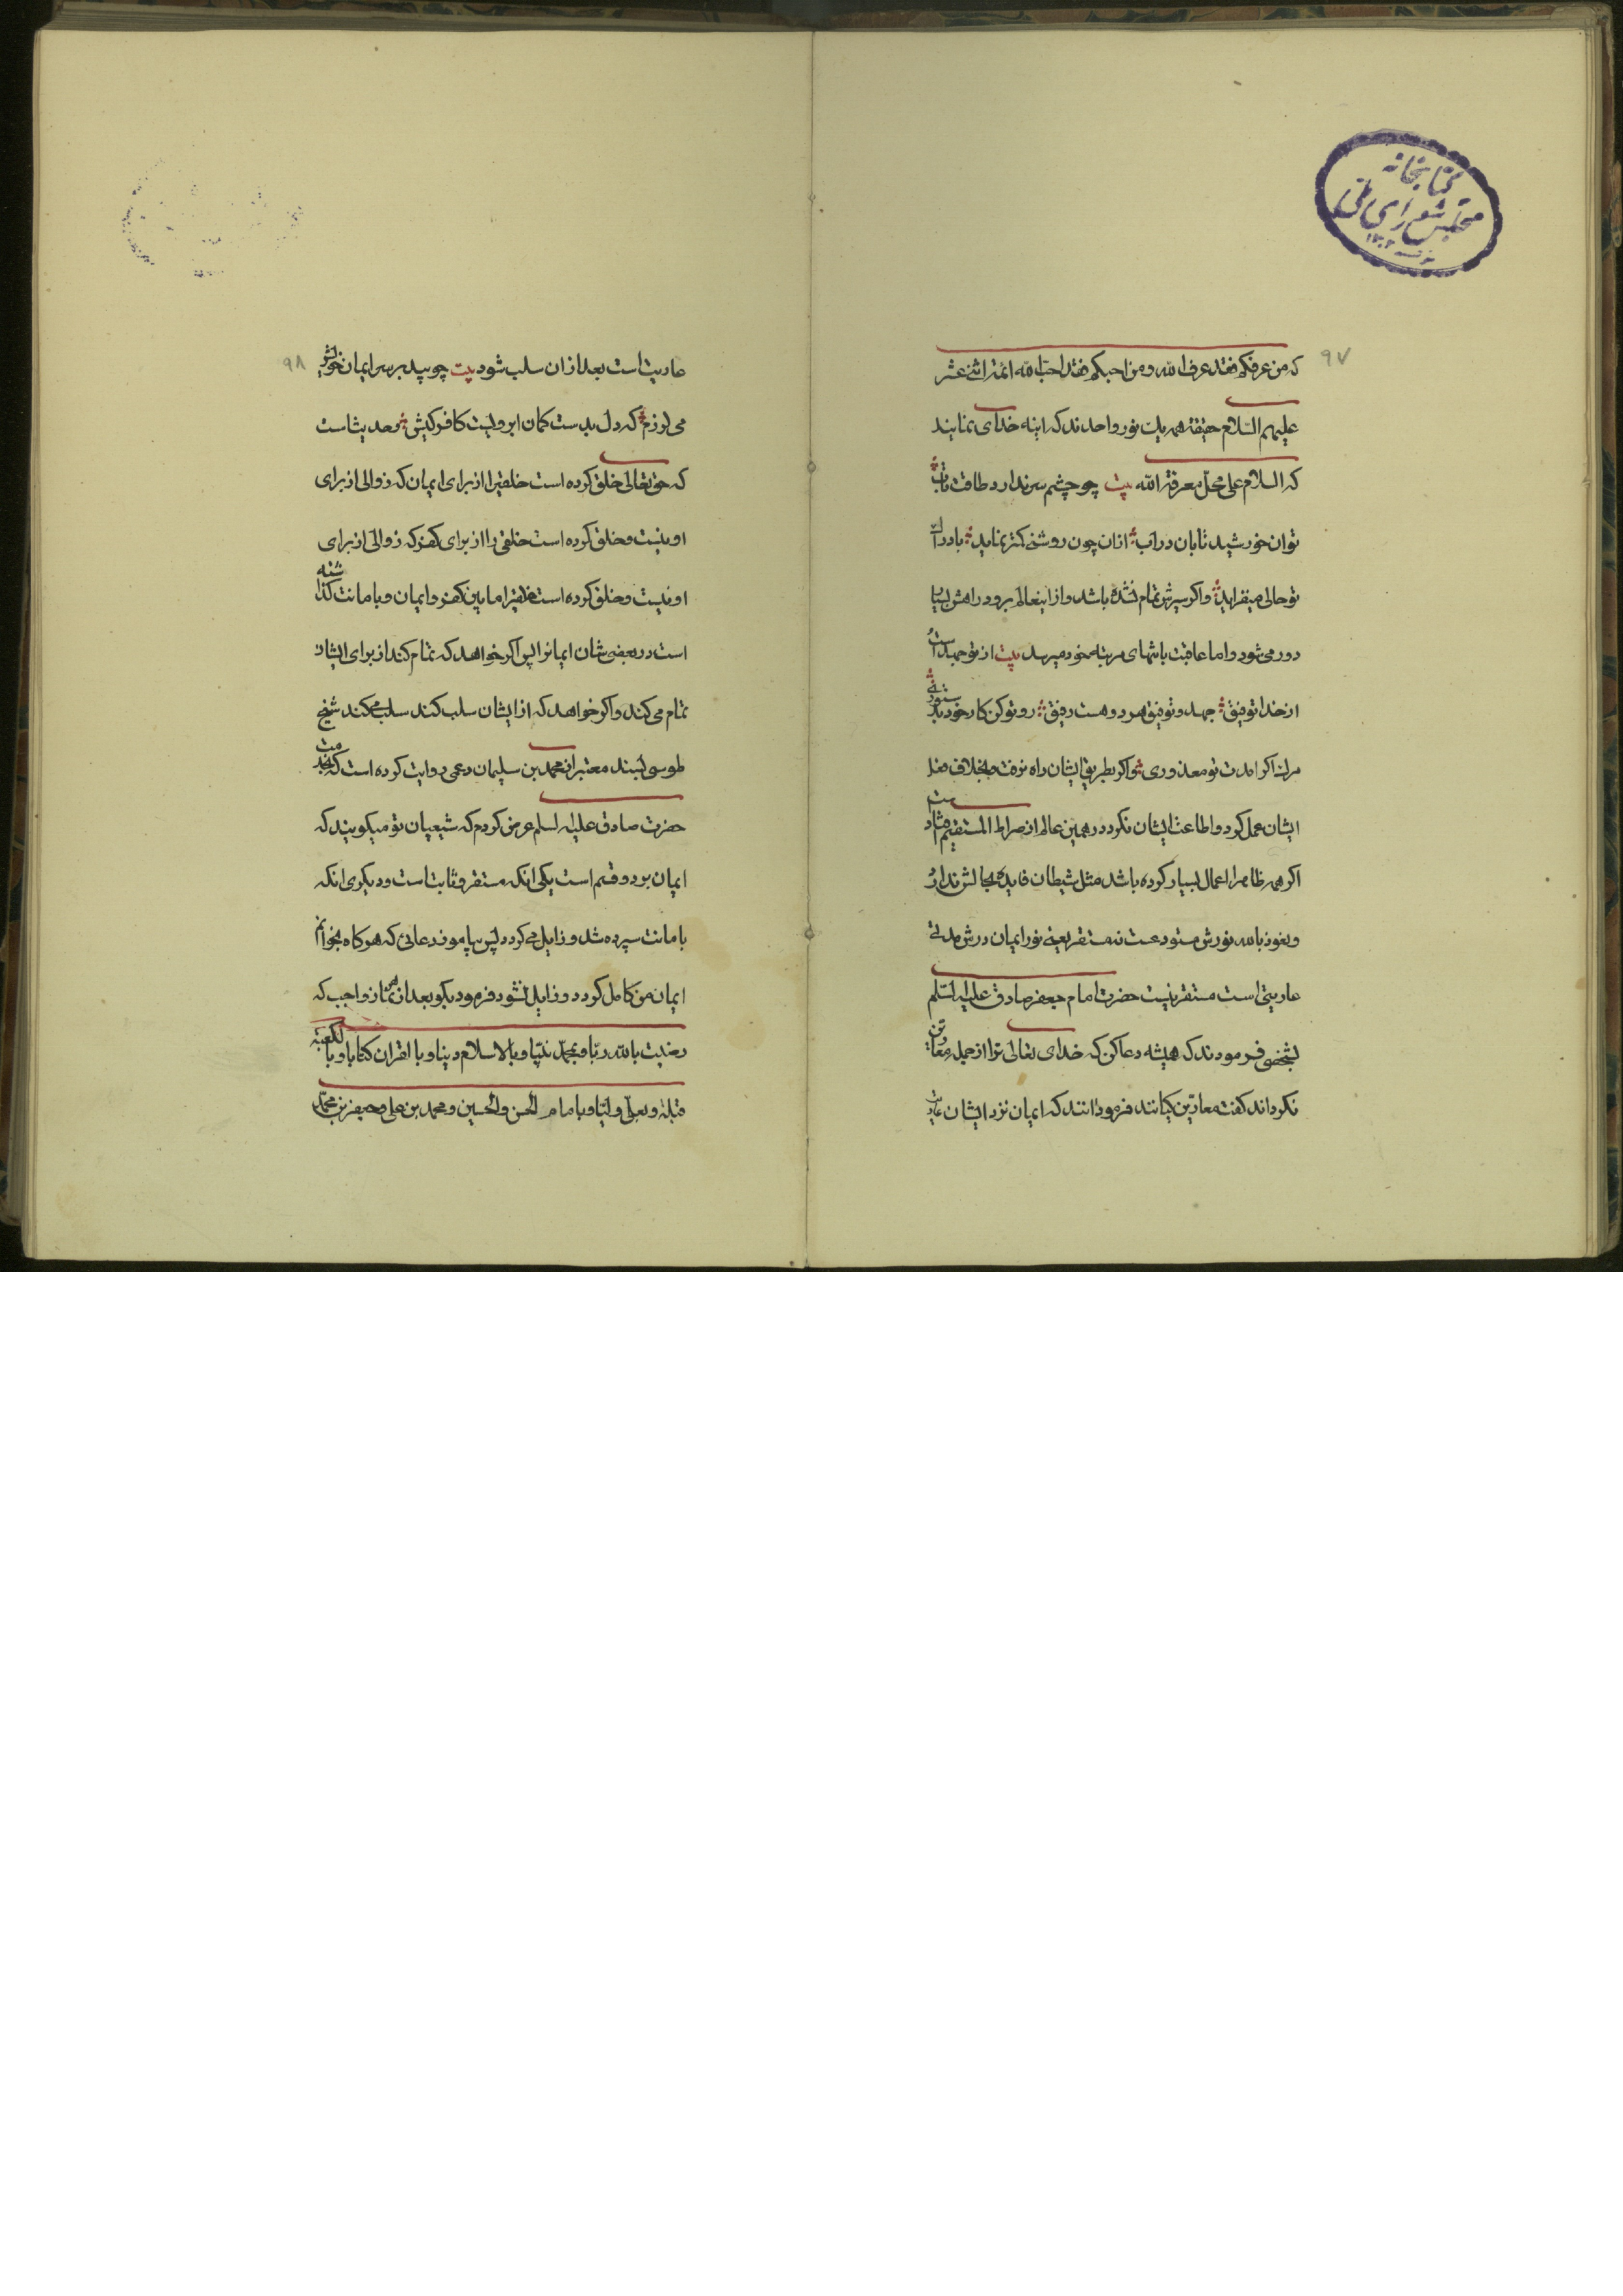 کتابخانه
مجلس شورای ملی
۹۷
که من عرفکم فقد عرف الله و من احبکم فقد احب الله ائمه اثنی عشر
علیهم السلام حقیقة همه یک نور واحدند که اینه خدای نمایند
که السلام علی محال معرفة الله بیت چو چشم سر ندارد طاقت تاب
توان خورشید تابان دراب ازان چون روشنی کمتر نماید
تو حالی میفزاید واکر سیرش تمام نشده باشد و از اینعالم برود راهش بسیار
دور می شود و اما عاقبت بانتهای مرتبه خود میرسد بیت از تو جهد است
از خدا توفیق جهد و توفیق هر دو هست رفیق رو تو کن کار خود
اکر امدت تو معذوری و اکر بطریق ایشان راه نرفت و بخلاف
ایشان عمل کرد و اطاعت ایشان نکرد در همین عالم از صراط المستقیم
اکر همه ظاهرا اعمال بسیار کرده باشد مثل شیطان فایده بحالش ندارد
و نعوذ بالله نورش مستودعست نه مستقر یعنی نور ایمان درش مدتی
عاریتی است مستقر نیست حضرت امام جعفر صادق علیه السلم
بشخصی فرمودند که همیشه دعا کن که خدای تعالی ترا از جمله معارین
نکرداند کفت معارین کیانند فرمود انند که ایمان نزد ایشان
۹۸
عاریت است بعد ازان سلب شود بیت چو بید بر سر ایمان خویش
می لرزم که دل بدست کمان ابرویست کافر کیش حدیث است
که حق تعالی خلق کرده است خلقیرا از برای ایمان که زوالی از برای
او نیست و خلق کرده است خلقی را از برای کفر که زوالی از برای
او نیست و خلق کرده است خلقیرا مابین کفر و ایمان و بامانت کذاشته
است در بعضی شان ایمانرا پس اکر خواهد که تمام کند از برای ایشان
تمام می کند و اکر خواهد که از ایشان سلب کند سلب میکند شیخ
طوسی بسند معتبر از محمد بن سلیمان دعمی روایت کرده است که بخدمت
حضرت صادق علیه السلم عرض کردم که شیعیان تو میکویند که
ایمان بر دو قسم است یکی انکه مستقر و ثابت است و دیکری انکه
بامانت سپرده شد و زایل می کردد پس بیاموز دعائی که هرکاه بخوانم
ایمان من کامل کردد و زایل نشود فرمود بکو بعد از هر نماز واجب که
رضیت بالله ربا و بمحمد نبیا و بالاسلام دینا و بالقران کتابا و بالکعبة
قبلة و بعلی ولیا و باماما الحسن و الحسین و محمد بن علی و جعفر بن محمد